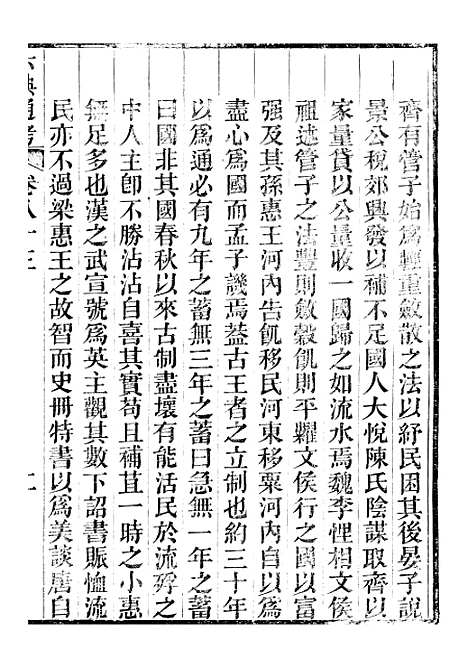 齊有管子始爲輕重斂散之法以紓民困其後晏子說
景公稅郊興發以補不足國人大悅陳氏陰謀取齊以
家量貸以公量收一國歸之如流水焉魏李悝相文侯
祖述管子之法豐則斂穀飢則平糶文侯行之國以富
强及其孫惠王河內告飢移民河東移粟河內自以爲
盡心爲國而孟子譏焉葢古王者之立制也約三十年
以爲通必有九年之蓄無三年之蓄曰急無一年之蓄
曰國非其國春秋以來古制盡壞有能活民於流殍之
中人主卽不勝沾沾自喜其實苟且補苴一時之小惠
無足多也漢之武宣號爲英主觀其數下詔書賑恤流
民亦不過梁惠王之故智而史冊特書以爲美談唐自
六典通考
卷八十三